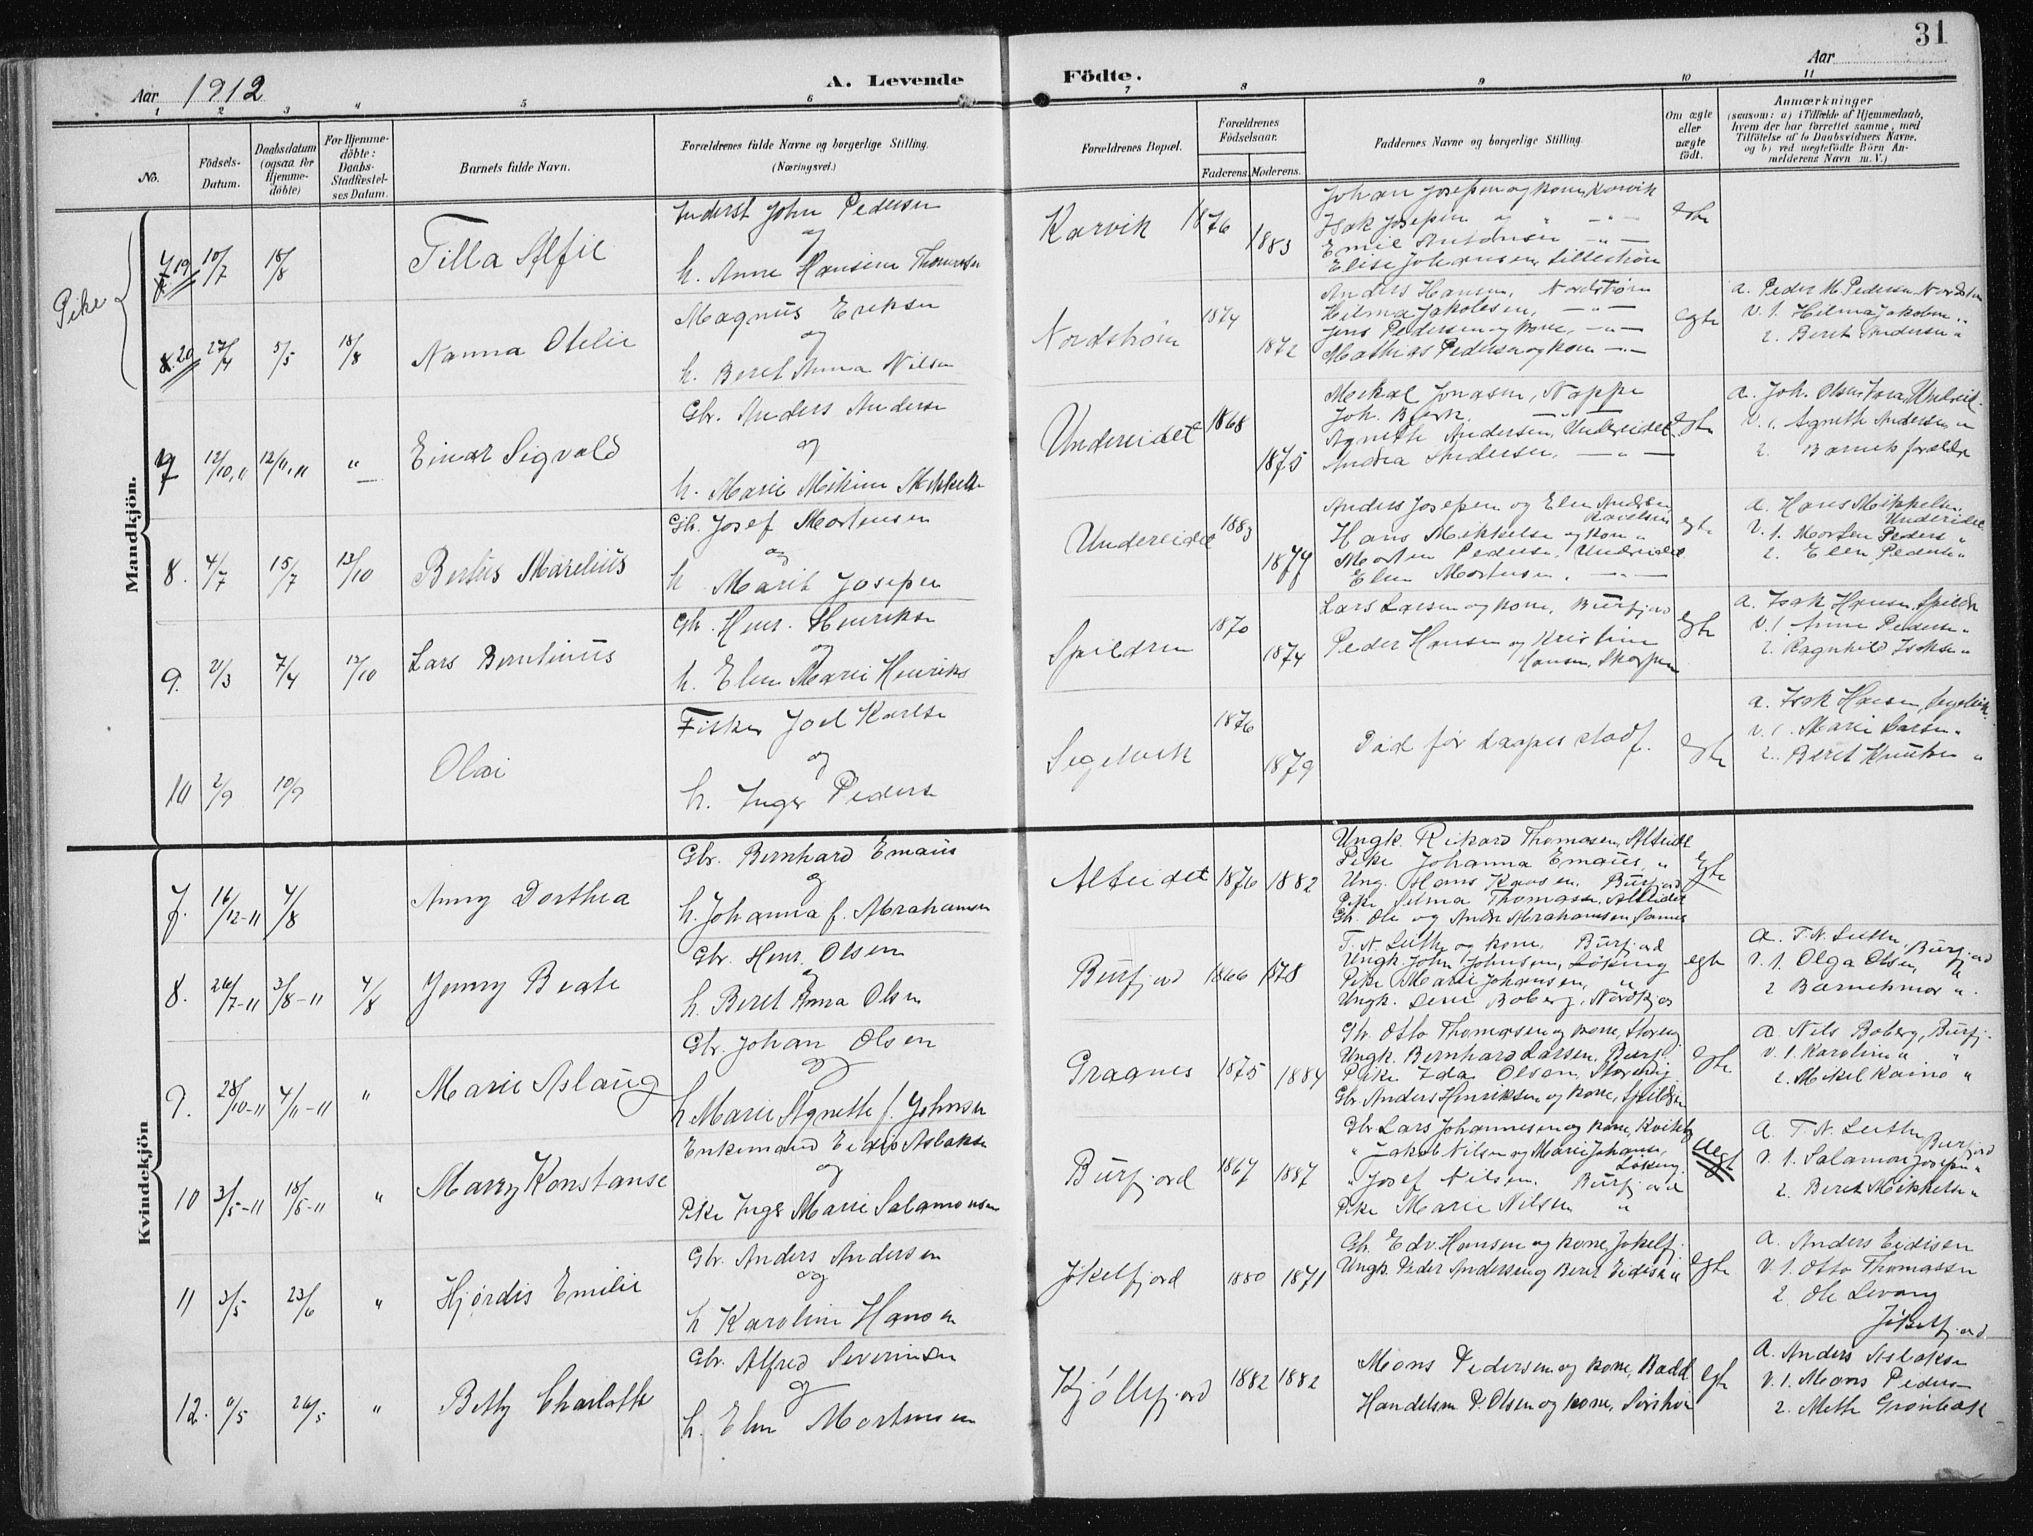 31
Aar 1912
A. Levende Födte.
Aar
1 2 3 4 5 6 7 8 9 10 11
No.
Födsels-Datum.
Daabsdatum (ogsaa för Hjemme-döbte)
For Hjemme-döbte: Daabs-Stadfæstel-ses Datum.
Barnets fulde Navn.
Forældrenes fulde Navne og borgerlige Stilling. (Næringsvei.)
Forældrenes Bopæl.
Forældrenes Födselsaar.
Faderens. Moderens.
Faddernes Navne og borgerlige Stilling.
Om ægte eller uægte födt.
Anmærkninger
(saasom: a) i Tilfælde af Hjemmedaab, hvem der har forrettet samme, med Tilföielse af to Daabsvidners Navne, og b) ved uægtefödte Börn Anmelderens Navn m. V.)
Pike
Mandkjön.
19 10/7 18/8 Tilla Alfie
Inderst John Pedersen
og
h. Anne Hansine Thomassen
Karvik 1876 1883
Johan Josefsen og kone, Karvik
Isak Josefsen og " - " -
Emil Antonsen - " -
Elise Johansen, Lillestrøm
egte
20 27/4 5/5 18/8 Nanna Otelie
Magnus Eriksen
og
h. Beret Anna Nilsen
Nordstrøm 1874 1872
Anders Hansen, Nordstrøm
Hilma Jakobsen, - " -
Jens Pedersen og kone, - " -
Mathias Pedersen og kone - " -
egte
a. Peder M. Pedersen Nordstrøm
v. 1. Hilma Jakobsen "
2. Beret Andersen "
7 12/10, 11 12/11, 11 " Einar Sigvald
Gbr. Anders Anderse
og
h. Marie Mikine Mikkels
Undereidet 1868 1875
Meikal Jonasen, Nappe
Joh. Bjerk, - " -
Agnethe Andersen, Undereidet
Andrea Andersen, - " -
egte
a. Joh. Olsen Undereid.
v. 1. Agnethe Andersen "
2. Barnets forældre
8. 4/7 15/7 13/10 Bertus Marelius
Gb. Josef Mortensen
og
h. Marit Josefsen
Undereidet 1883 1874
Anders Josefsen og Elen Andersen
Hans Mikkelse og kone "
Morten Pederse, Undereidet
Elen Mortensen, - " -
egte
a. Hans Mikkelsen, Undereidet
v. 1. Morten Peders "
2. Elen Pederse "
9. 2/3 7/4 12/10 Lars Berntinus
Gb. Henr. Henrikse
og
h. Elen Marie Henriks
Spildren 1870 1874
Lars Larsen og kone, Burfjord
Peder Hansen og Kristine
Hansen, Skorpen
egte
a. Isak Hansen, Spildr
v. 1 Anne Pederse "
2. Ragnhild Isakse "
10 2/9 10/9 Olai
Fisker Joel Karlse
og
h. Inger Pederse
Segelvik 1876 1879
Død før daapes stadf.
egte
a. Isak Hansen, Segelvik
v. 1. Marie Larsen "
2. Beret Knutsen "
Kvindekjön
7. 16/12-11 4/8 Anny Dorthea
Gbr. Bernhard Emaus
og
h. Johanna f. Abrahamsen
Alteidet 1876 1882
Ungk. Rikard Thomasen, Alteidet
Pike Johanna Emaus, "
Ung. Hans Kaasen, Burfjord
Pike Selma Thomasen, Alteidet
Gb. Ole og Andr. Abrahamsen Sannes
Egte
8. 26/7-11 3/8-11 4/8 Jenny Beate
Gbr. Henr. Olsen
og
h. Beret Anna Olsen
Burfjord 1866 1878
T. N. Luther og kone, Burfjord
Ungk. John Johnsen, Løkeng
Pike Marie Johansen, "
Ungk. Leni Boberg, Nordkjos
egte
a. T. N. Luther, Burfjord
v. 1. Olga Olsen, "
2 Barnets mor "
9. 28/10-11 4/11-11 " Marie Aslaug
Gbr. Johan Olsen
og
h Marie Agnethe f. Johnsen
Gragnes 1875 1884
Gb. Otto Thomasen og kone, Storeng
Ungk. Bernhard Larsen, Burfj.
Pike Ida Olsen, Storeng
Gbr. Anders Henriksen og kone, Spildren
egte
a. Nils Boberg, Burfj.
v. 1. Karoline " "
2. Mikel Kaino "
10 3/5-11 18/5-11 " Marry Konstanse
Enkemand Eidis Aslakse
og
Pike Inger Marie Salamonsen
Burfjord 1867 1887
Gbr. Lars Johannesen og kone, Kviteb
" Jakob Nilsen og Marie Johanse, Løkeng
" Josef Nilsen, Burfjord
Pike Marie Nilsen "
uegt
a. T. N. Luther Burfjord
v. 1. Salamon Josefsen "
2. Beret Mikkelse "
11 3/5 23/6 " Hjørdis Emilie
Gbr. Anders Andersen
og
h Karoline Hansen
Jøkelfjord 1880 1871
Gb. Edv. Hansen og kone, Jøkelfj.
Ungk. Peder Andersen og Beret Eidisen "
egte
a. Anders Eidisen
v. 1. Otto Thomassen
2. Ole Levang
Jøkelfjord
12. 9/5 26/5 " Betty Charlotte
Gbr. Alfred Severinsen
og
h. Elen Mortensen
Kjøllefjord 1882 1882
Mons Pedersen og kone, Badd
Handelsm P. Olsen og kone, Sørstr
egte
a. Anders Aslakse
v. 1. Mons Pederse
2. Meth Grønbæk